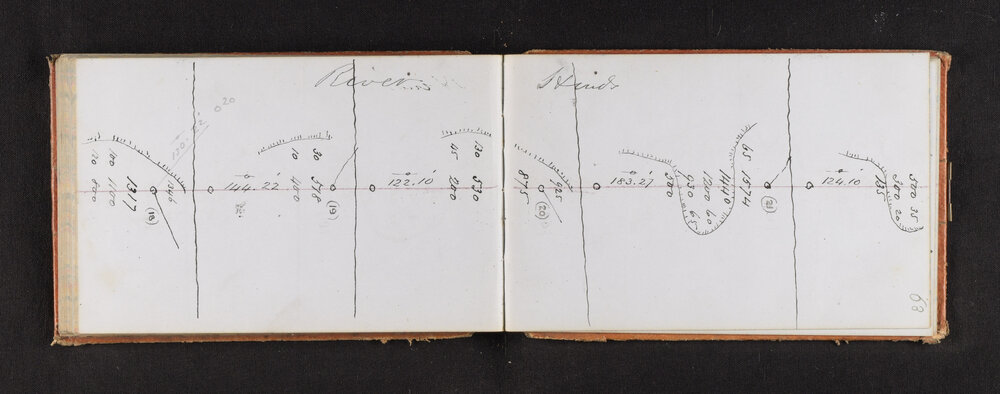 River Hinds
120
800
100
1100
1317
1346
(18)
020
144.22
10
400
30
578
(19)
122.10
45
200
130
530
875
925
(20)
183.27
300
930 65
1200 60
1440
65 1574
(21)
124.10
135
500 20
500 35
63